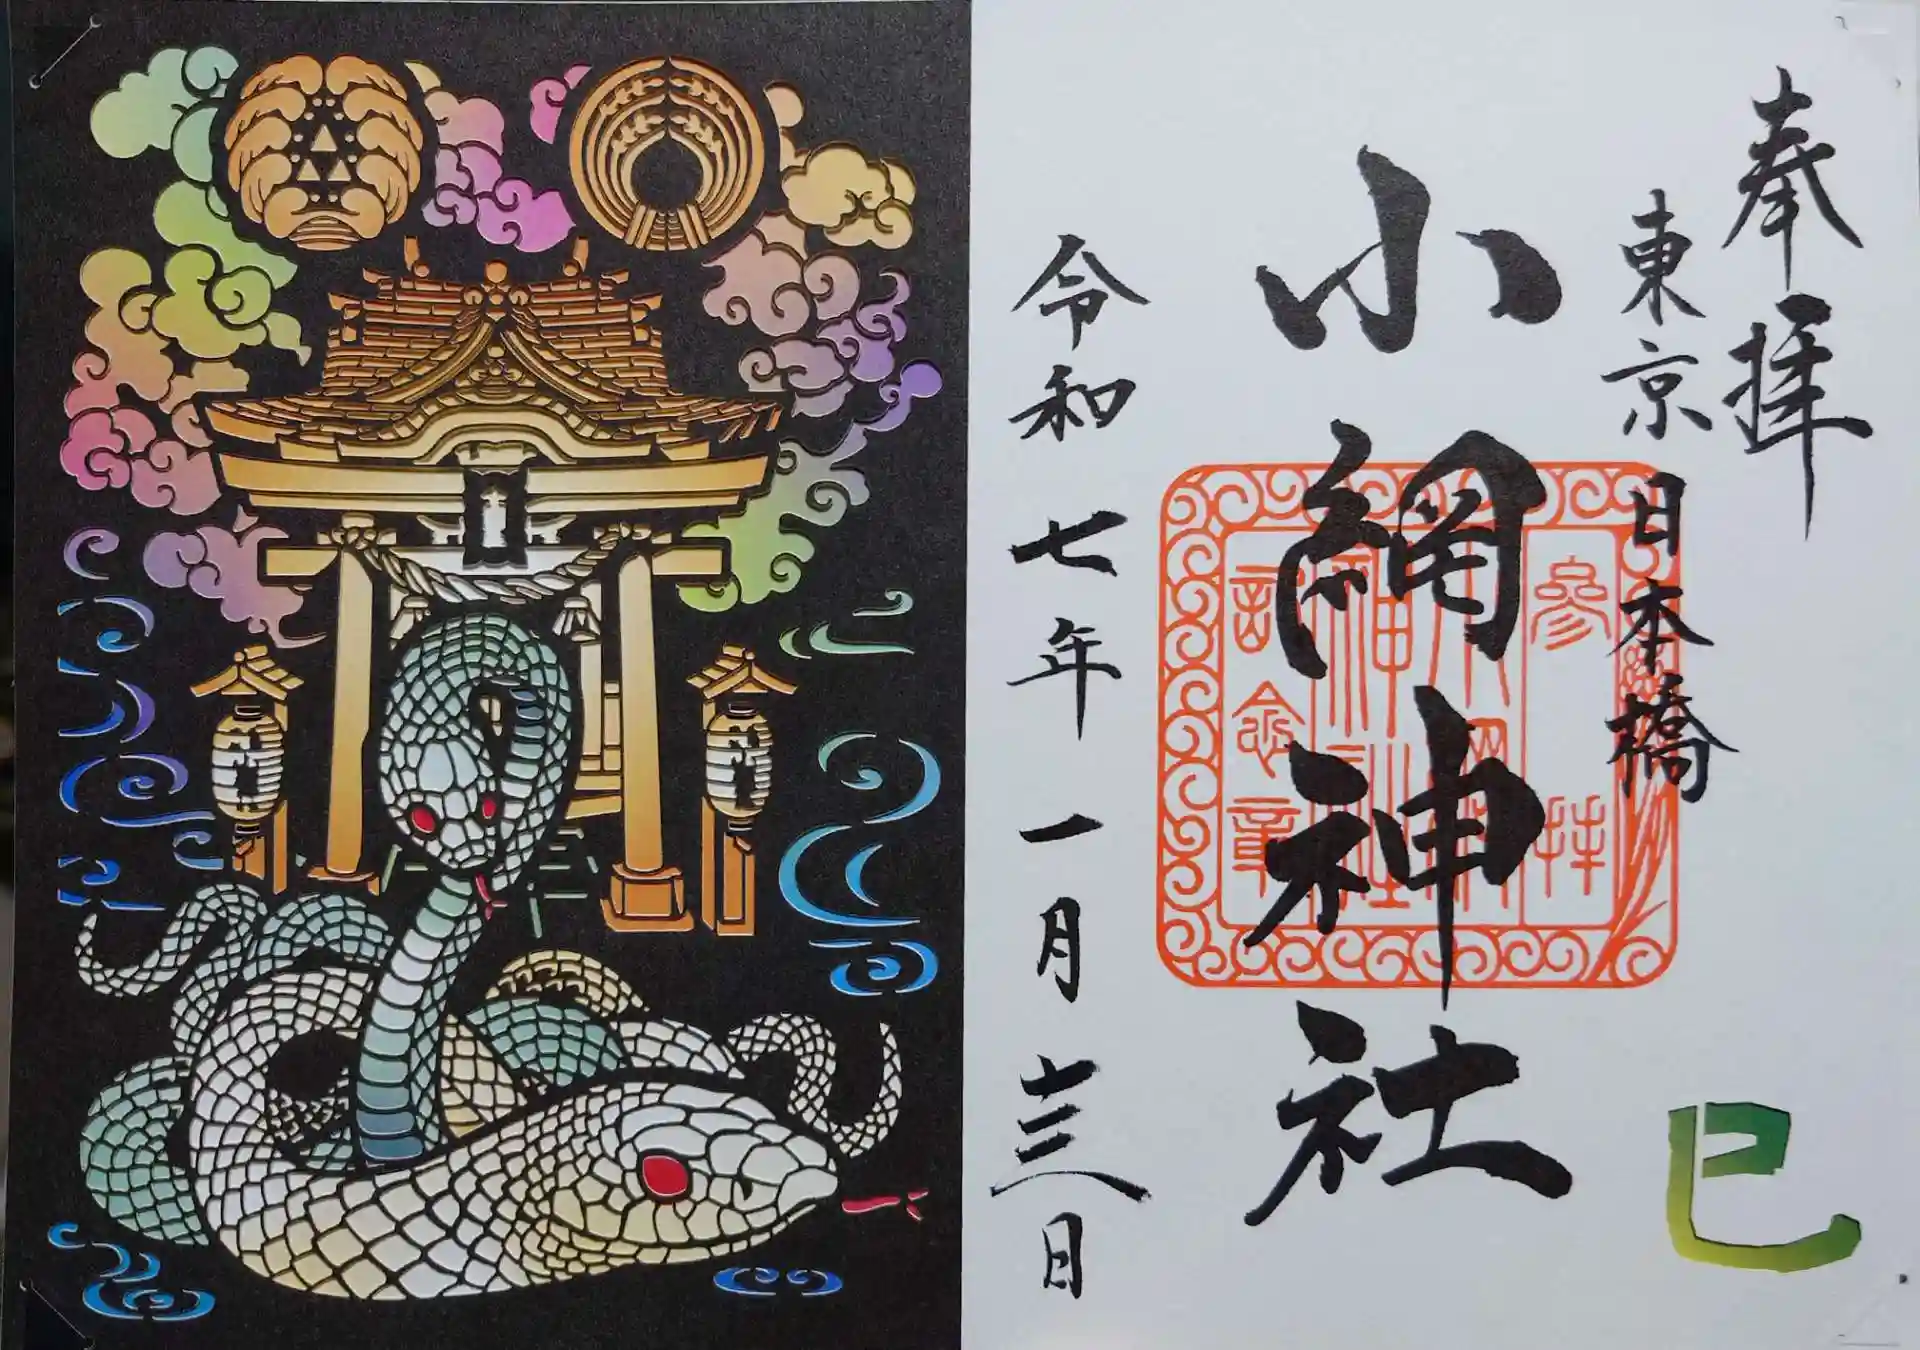 奉拝
東京日本橋
小網神社
参拝
小網
神社
記念章
令和七年一月十三日
巳